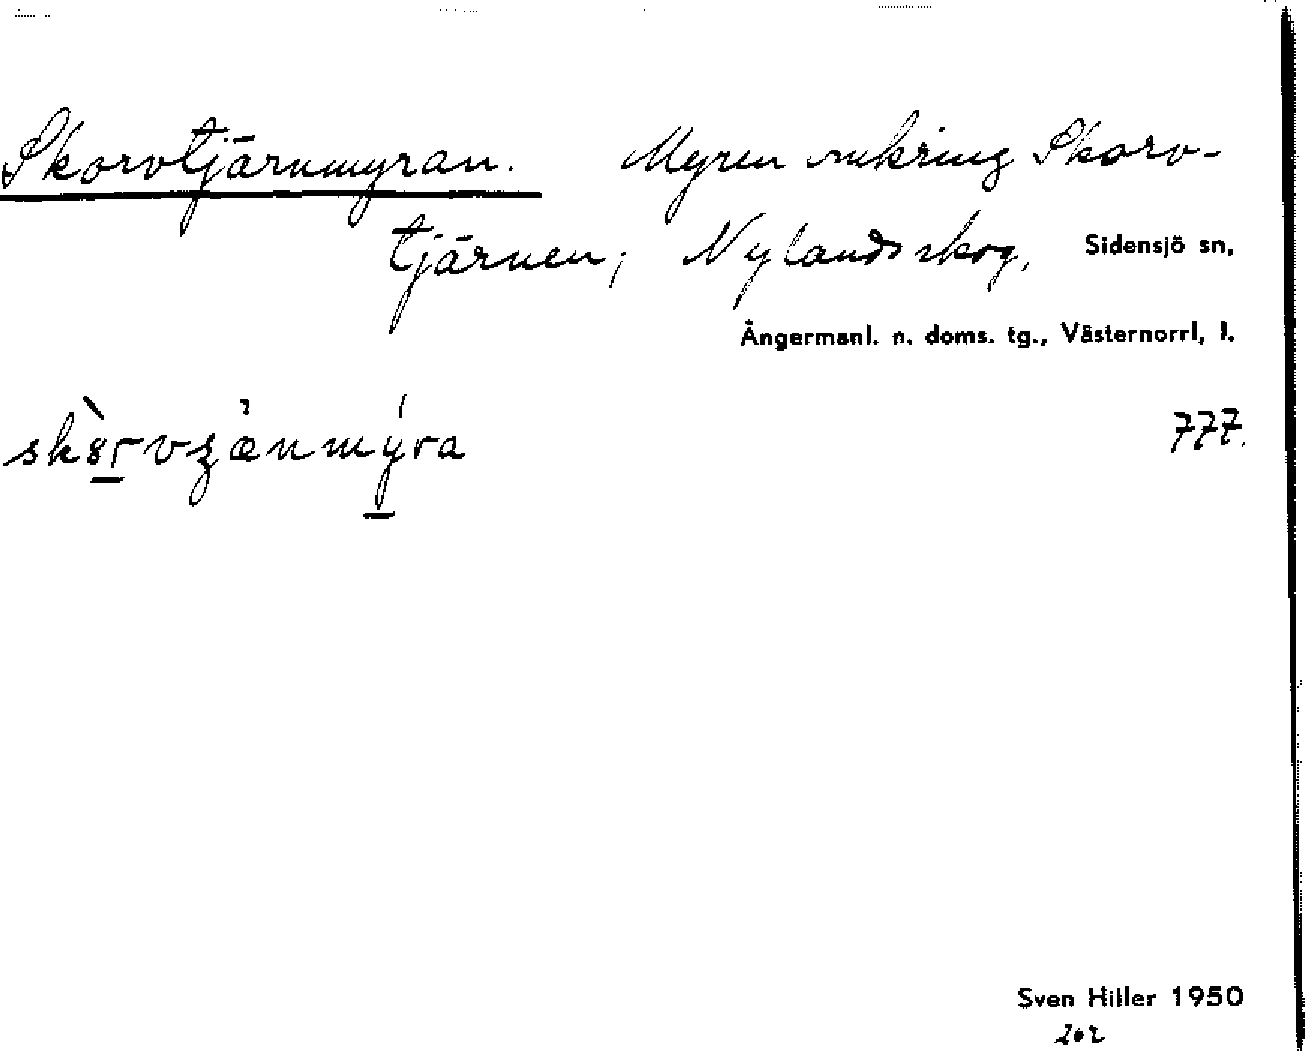 Skorvtjärnmyran. Myren omkring Skorv-
tjärnen; Nylands skog, Sidensjö sn,
Ångermanl. n. doms. tg., Västernorrl. l.
777.
Sven Hiller 1950
202